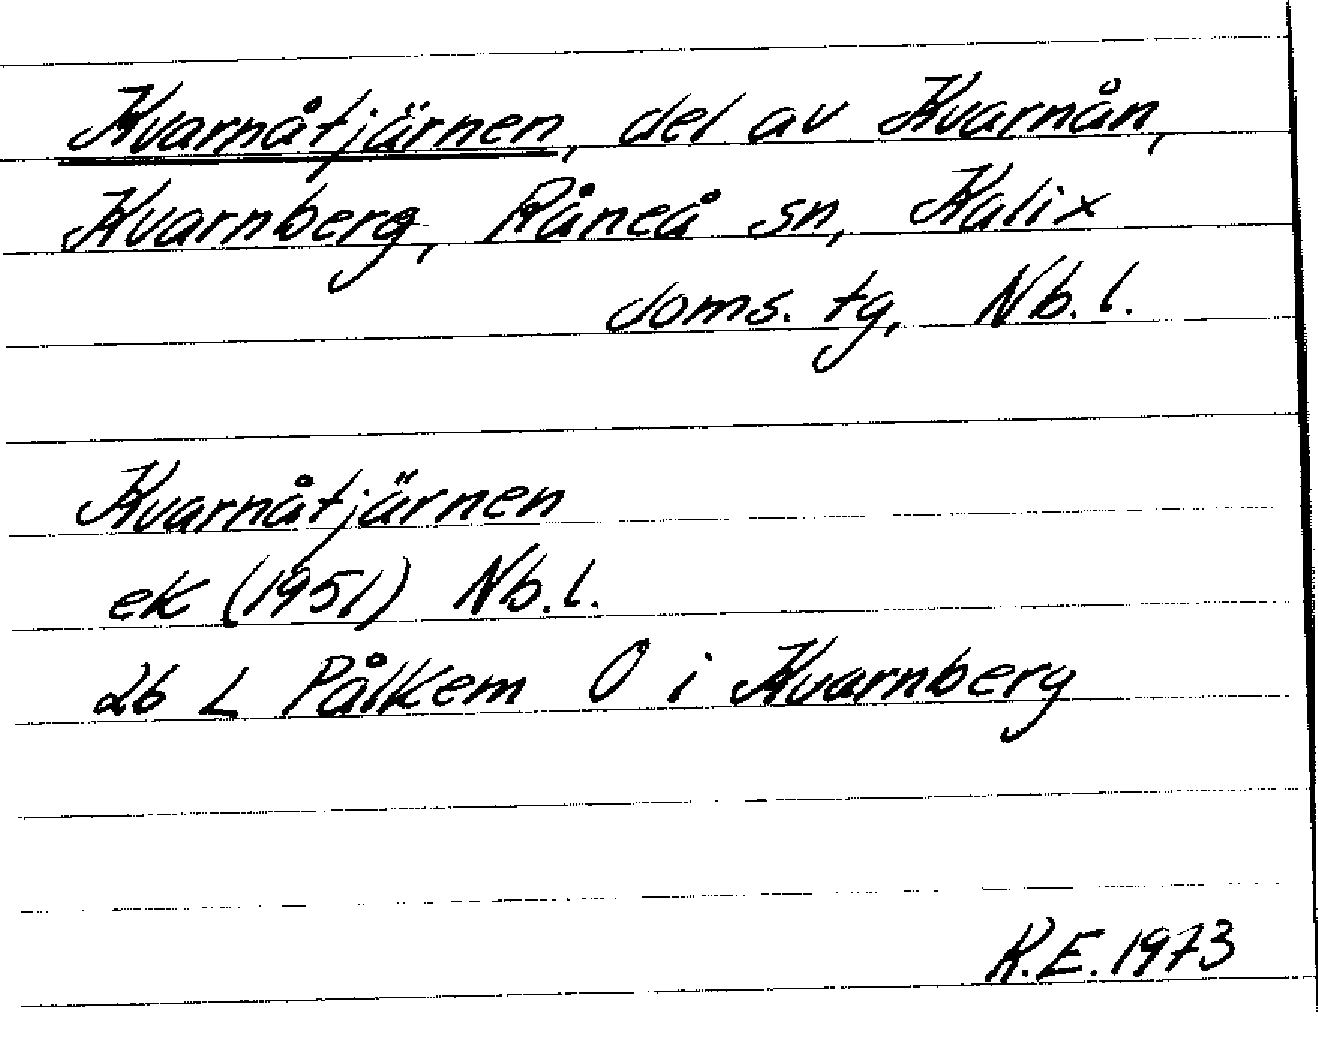 Kvarnåtjärnen, del av Kvarnån,
Kvarnberg, Råneå sn, Kalix
doms. tg, Nb. l.
Kvarnåtjärnen
ek (1951) Nb. l.
26 L Pålkem O i Kvarnberg
K.E. 1973